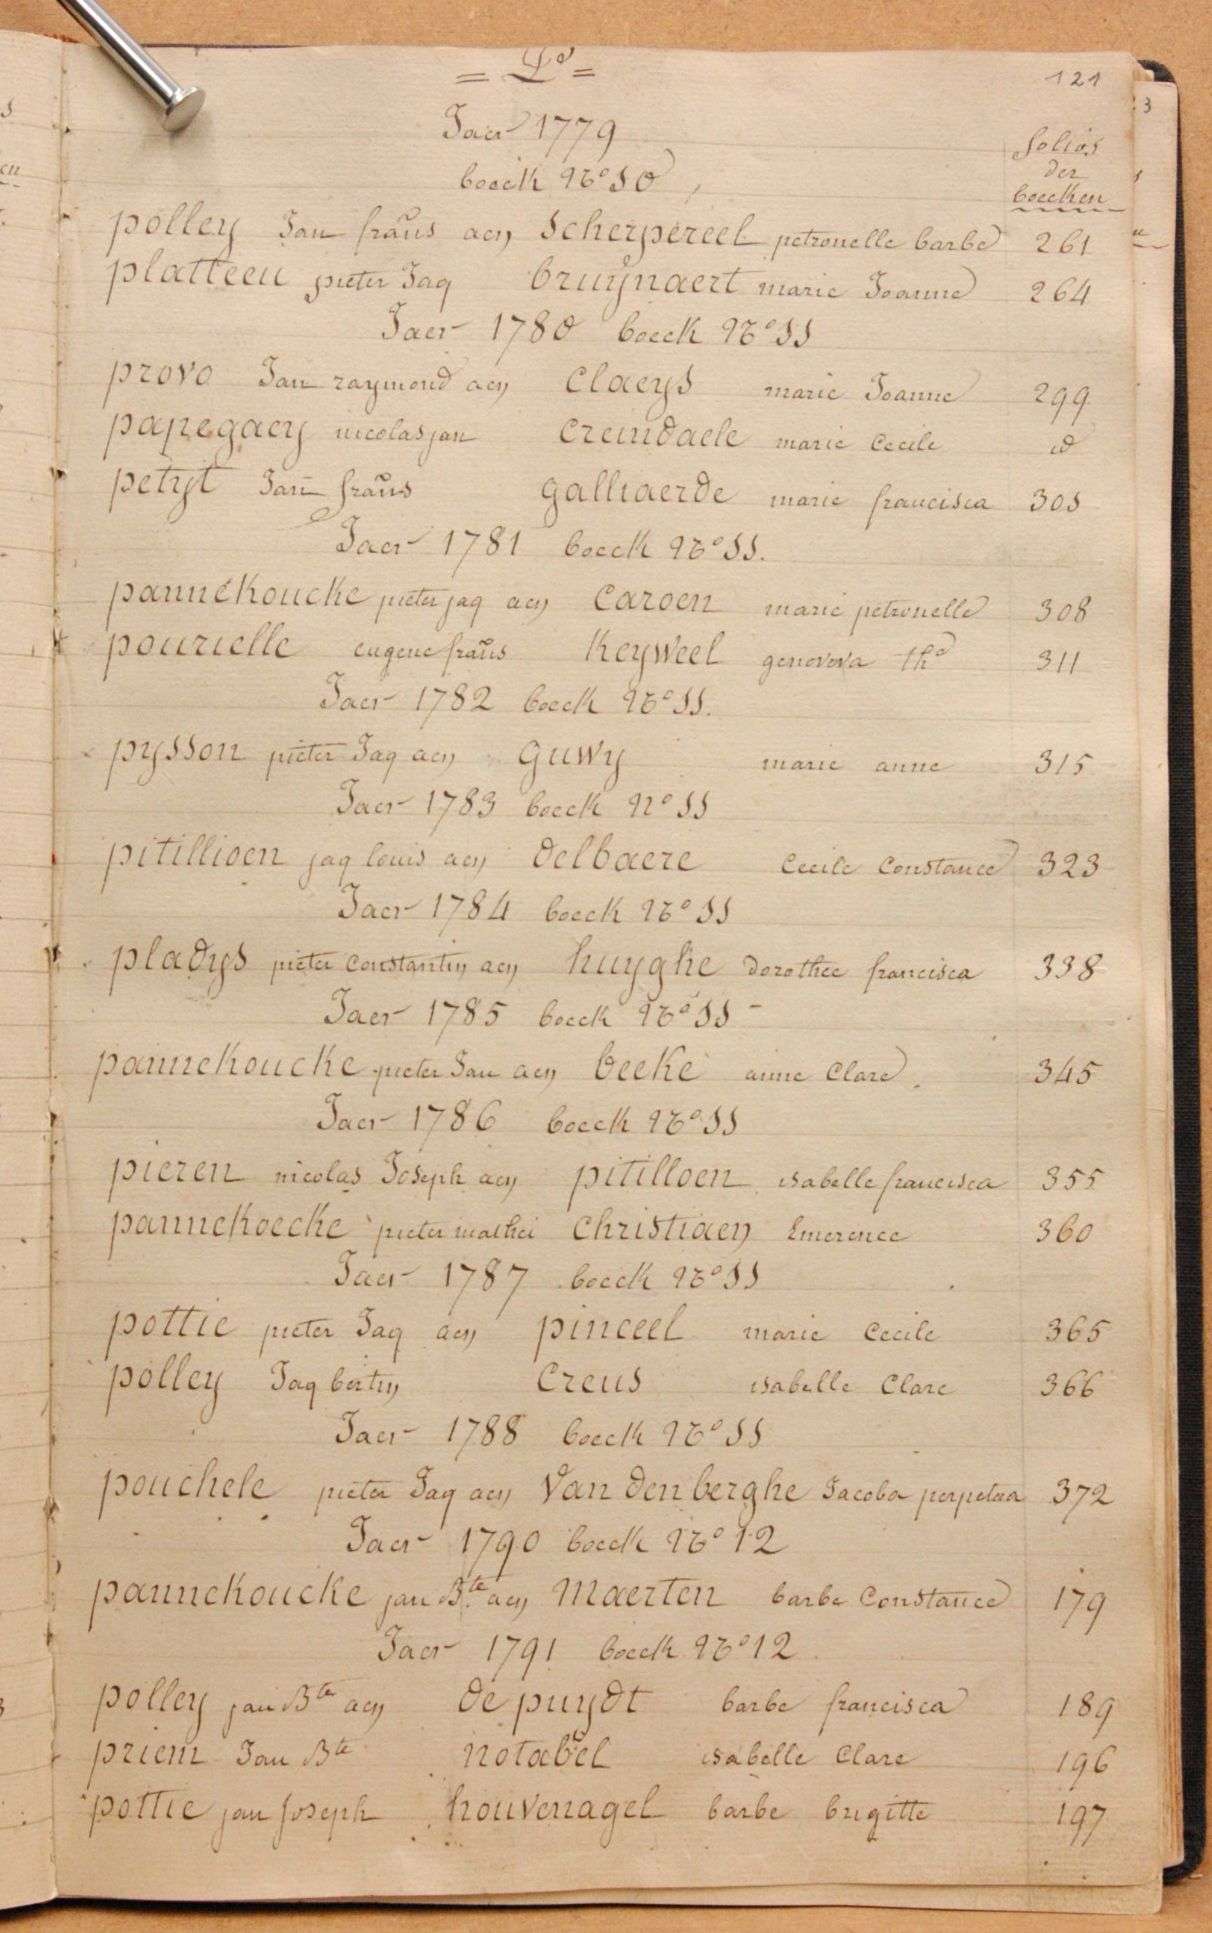 = P =
121
Jaer 1779
folios
der
boecken
boeck No 10
polley Jan frans aen Scherpereel petronelle barbe 261
platteeu pieter Jaq bruijnaert marie Joanne 264
Jaer 1780 boeck No 11
provo Jan raymond aen Claeys marie Joanne 299
papegaey nicolas jan Creindaele marie Cecile id
petyt Jan frans galliaerde marie francisca 305
Jaer 1781 boeck No 11.
pannekoucke pieter jaq aen Caroen marie petronelle 308
pourielle eugene frans Keyweel genoveva the 311
Jaer 1782 boeck No 11.
pysson pieter Jaq aen Guwy marie anne 315
Jaer 1783 boeck No 11
pitillioen jaq louis aen delbaere Cecile Constance 323
Jaer 1784 boeck No 11
pladys pieter Constantin aen huyghe Dorothee francisca 338
Jaer 1785 boeck No 11
pannekoucke pieter Jan aen beeke anne Clare 345
Jaer 1786 boeck No 11
pieren nicolas Joseph aen pitilloen isabelle francisca 355
pannekoecke pieter mathei Christiaen Emerence 360
Jaer 1787 boeck No 11
pottie pieter Jaq aen pinceel marie Cecile 365
polley Jaq bertin Creus isabelle Clare 366
Jaer 1788 boeck No 11
pouchele pieter Jaq aen Van den berghe Jacoba perpetua 372
Jaer 1790 boeck No 12
pannekoucke jan Bte aen Maerten barbe Constance 179
Jaer 1791 boeck No 12
polley jan Bte aen de puydt barbe francisca 189
priem Jan Bte notabel isabelle Clare 196
pottie jan Joseph houvenagel barbe brigitte 197